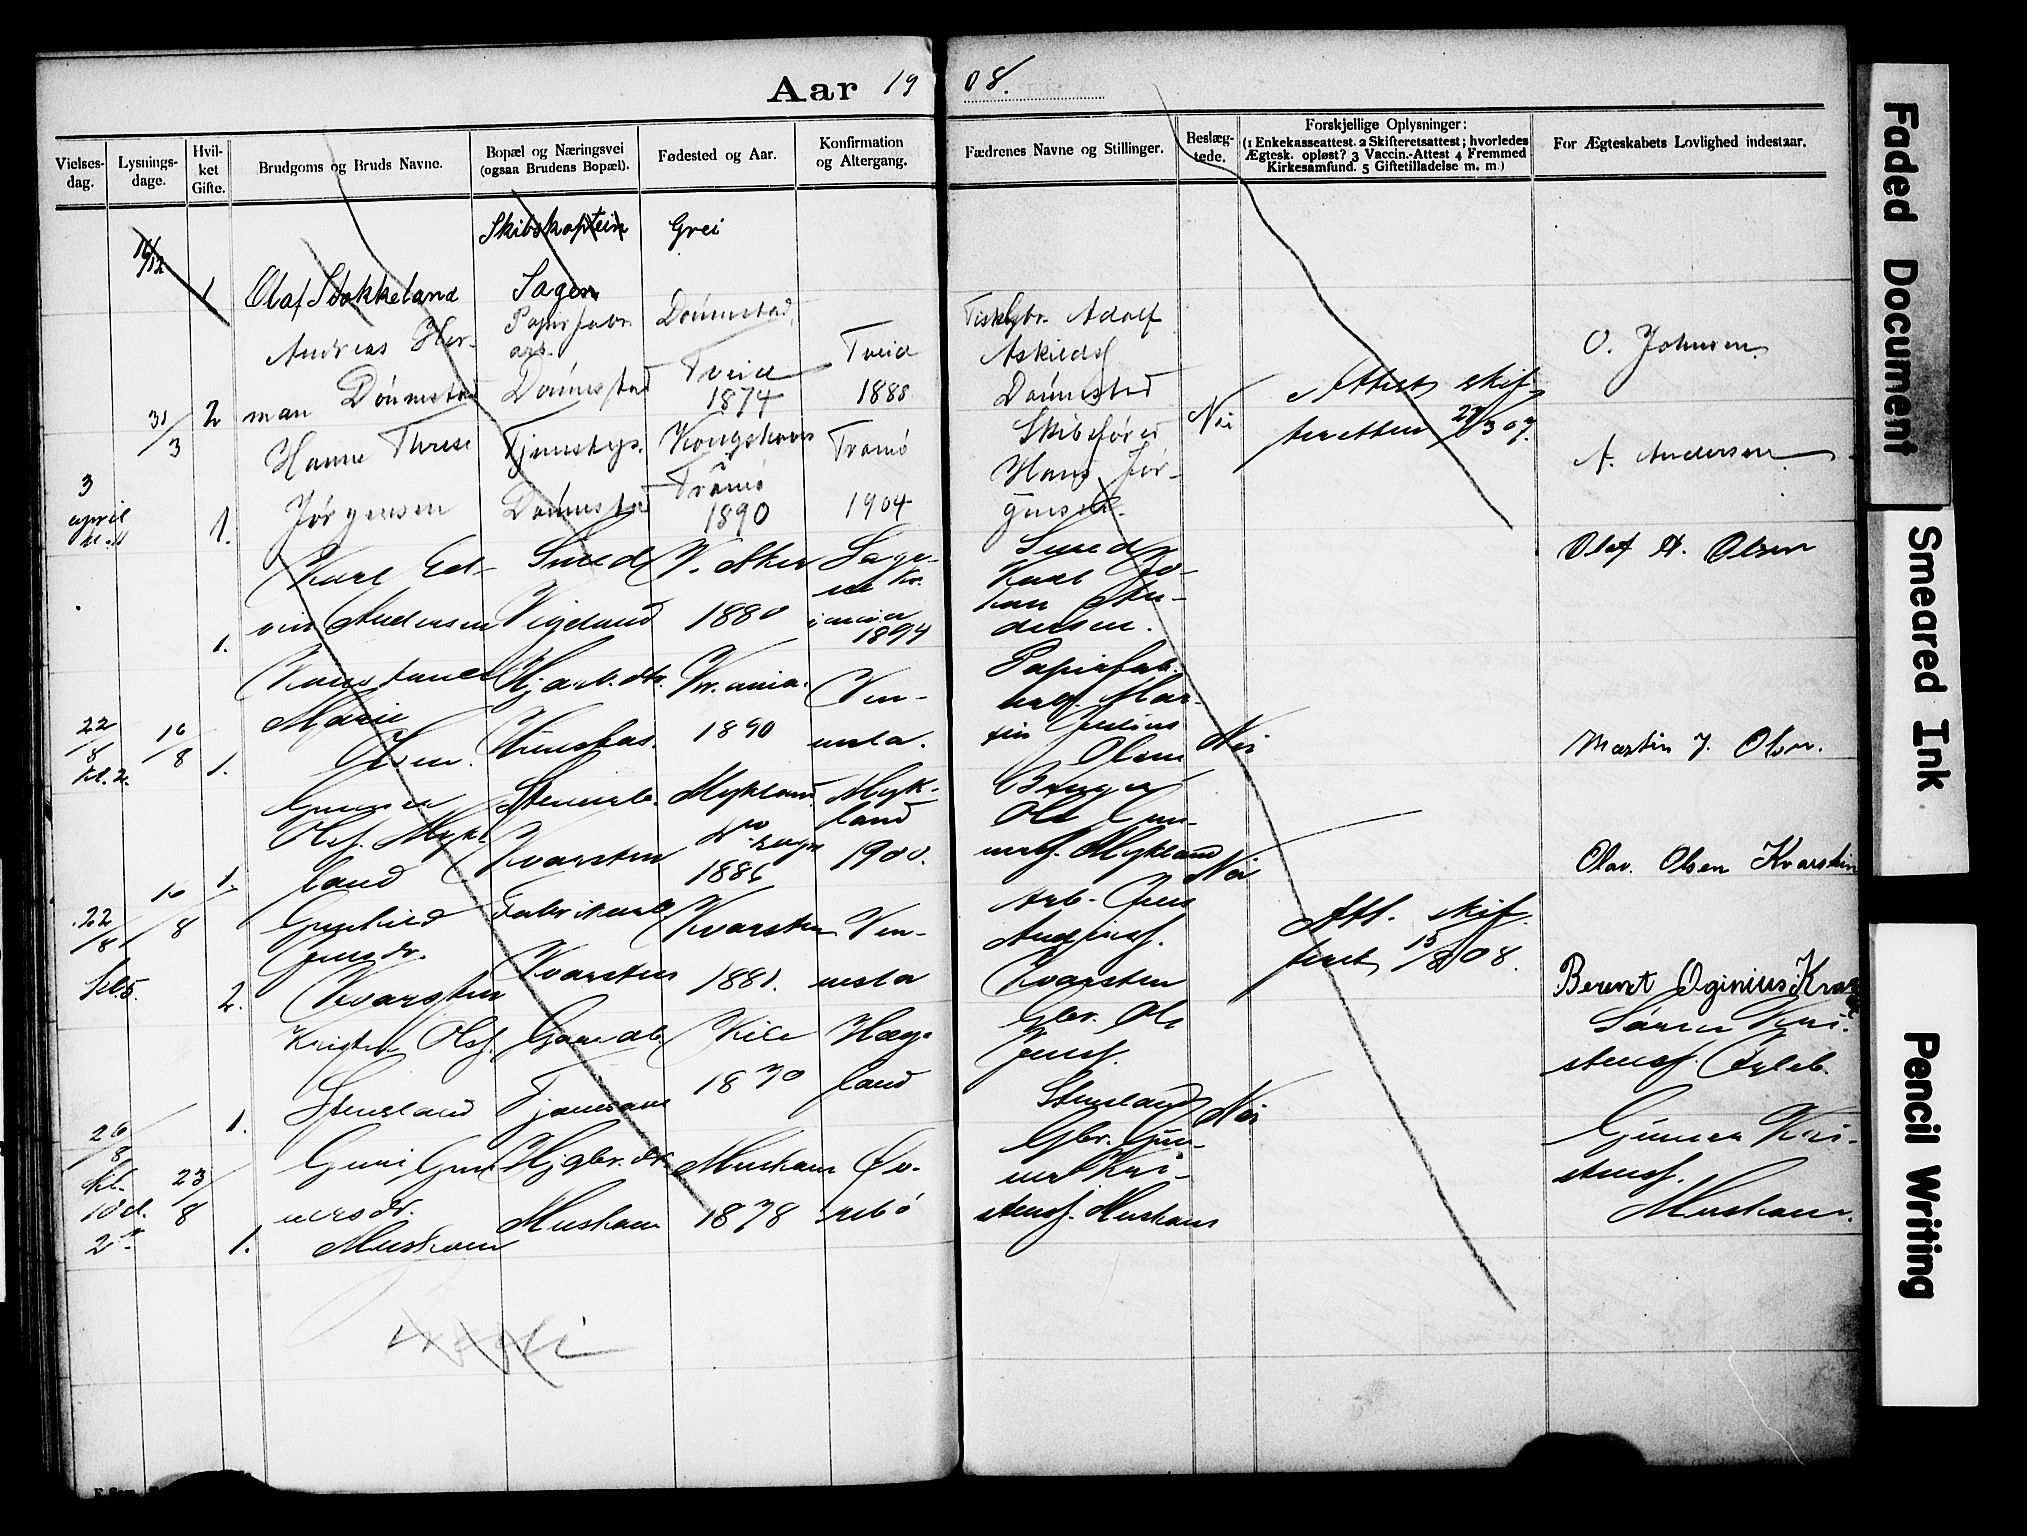 Aar 1908.
Vielses-dag.
Lysnings-dage.
Hvil-ket Gifte.
Brudgoms og Bruds Navne.
Bopæl og Næringsvei (ogsaa Brudens Bopæl).
Fødested og Aar.
Konfirmation og Altergang.
Fædrenes Navne og Stillinger.
Beslæg-tede.
Forskjellige Oplysninger:
(1 Enkekasseattest. 2 Skifteretsattest; hvorledes
Ægtesk. opløst? 3 Vaccin.-Attest 4 Fremmed
Kirkesamfund. 5 Giftetilladelse m. m.)
For Ægteskabets Lovlighed indestaar.
16/12
1
Olaf Stokkeland
Skibskaptein
Sagen
Grei
31/3
2
Andreas Her-
man Dönnestad
Papirfabr.
arb.
Dönnestad
Dönnestad,
Tveid
1874
Tveid
1888
Adolf
Askilds
Dönnestad
Nei
Attest skif-
teretten 27/3 07.
O. Johnsen.
3
april
1.
Hanne Therese
Jörgensen
Tjenestegs.
Dönnestad
Tromö
1890
Tromö
1904
Skibsförer
Hans Jör-
gensen.
A. Andersen
1.
Karl Ed-
vin Andersen
Smed
Vigeland
V. Aker
1880
Sage-
ne Kr.
iania
1894
Smed
Karl Jo-
han An-
dersen.
Olaf A. Olsen
22/8
kl. 2.
16/8
1.
Marie
Olsen.
Hj. arb. dtr.
Kr.ania.
1890
Ven-
nesla.
Papirfab.
arb. Mar-
tin Julius
Olsen
Nei
Martin J. Olsen.
1.
Gunner
Ols. Mykl
land
Kvarsten
Mykland
sogn
1886
Myk-
land
1900.
Ole Gun-
ners. Mykland
Nei
Olav. Olsen Kvarstein
22/8
kl. 5.
16/8
2.
Gunhild
Jensdr.
Kvarsten
Fabrikarb.
Kvarsten
Kvarsten
1881.
Ven-
nesla
Arb. Jens
Anders.
Kvarsten
Att. skif-
teret 15/8 08.
Berent Oginius Kvar
1.
Kristen Ols.
Stensland
Gaardbr.
Kile
1870
Hæge
land
Gbr. Ole
Jens.
Stensland
Nei
Sören Kri-
stens.
26/8
kl.
23/8
1.
Guni Gun
nersdr.
Muskam
Hj gbr. dtr.
Muskam
Muskam
1878
Öv-
rebö
Gbr. Gun-
ner Kri-
stens. Muskam
Gunner Kri-
stens.
Muskam.
Faded Document
Smeared Ink
Pencil Writing